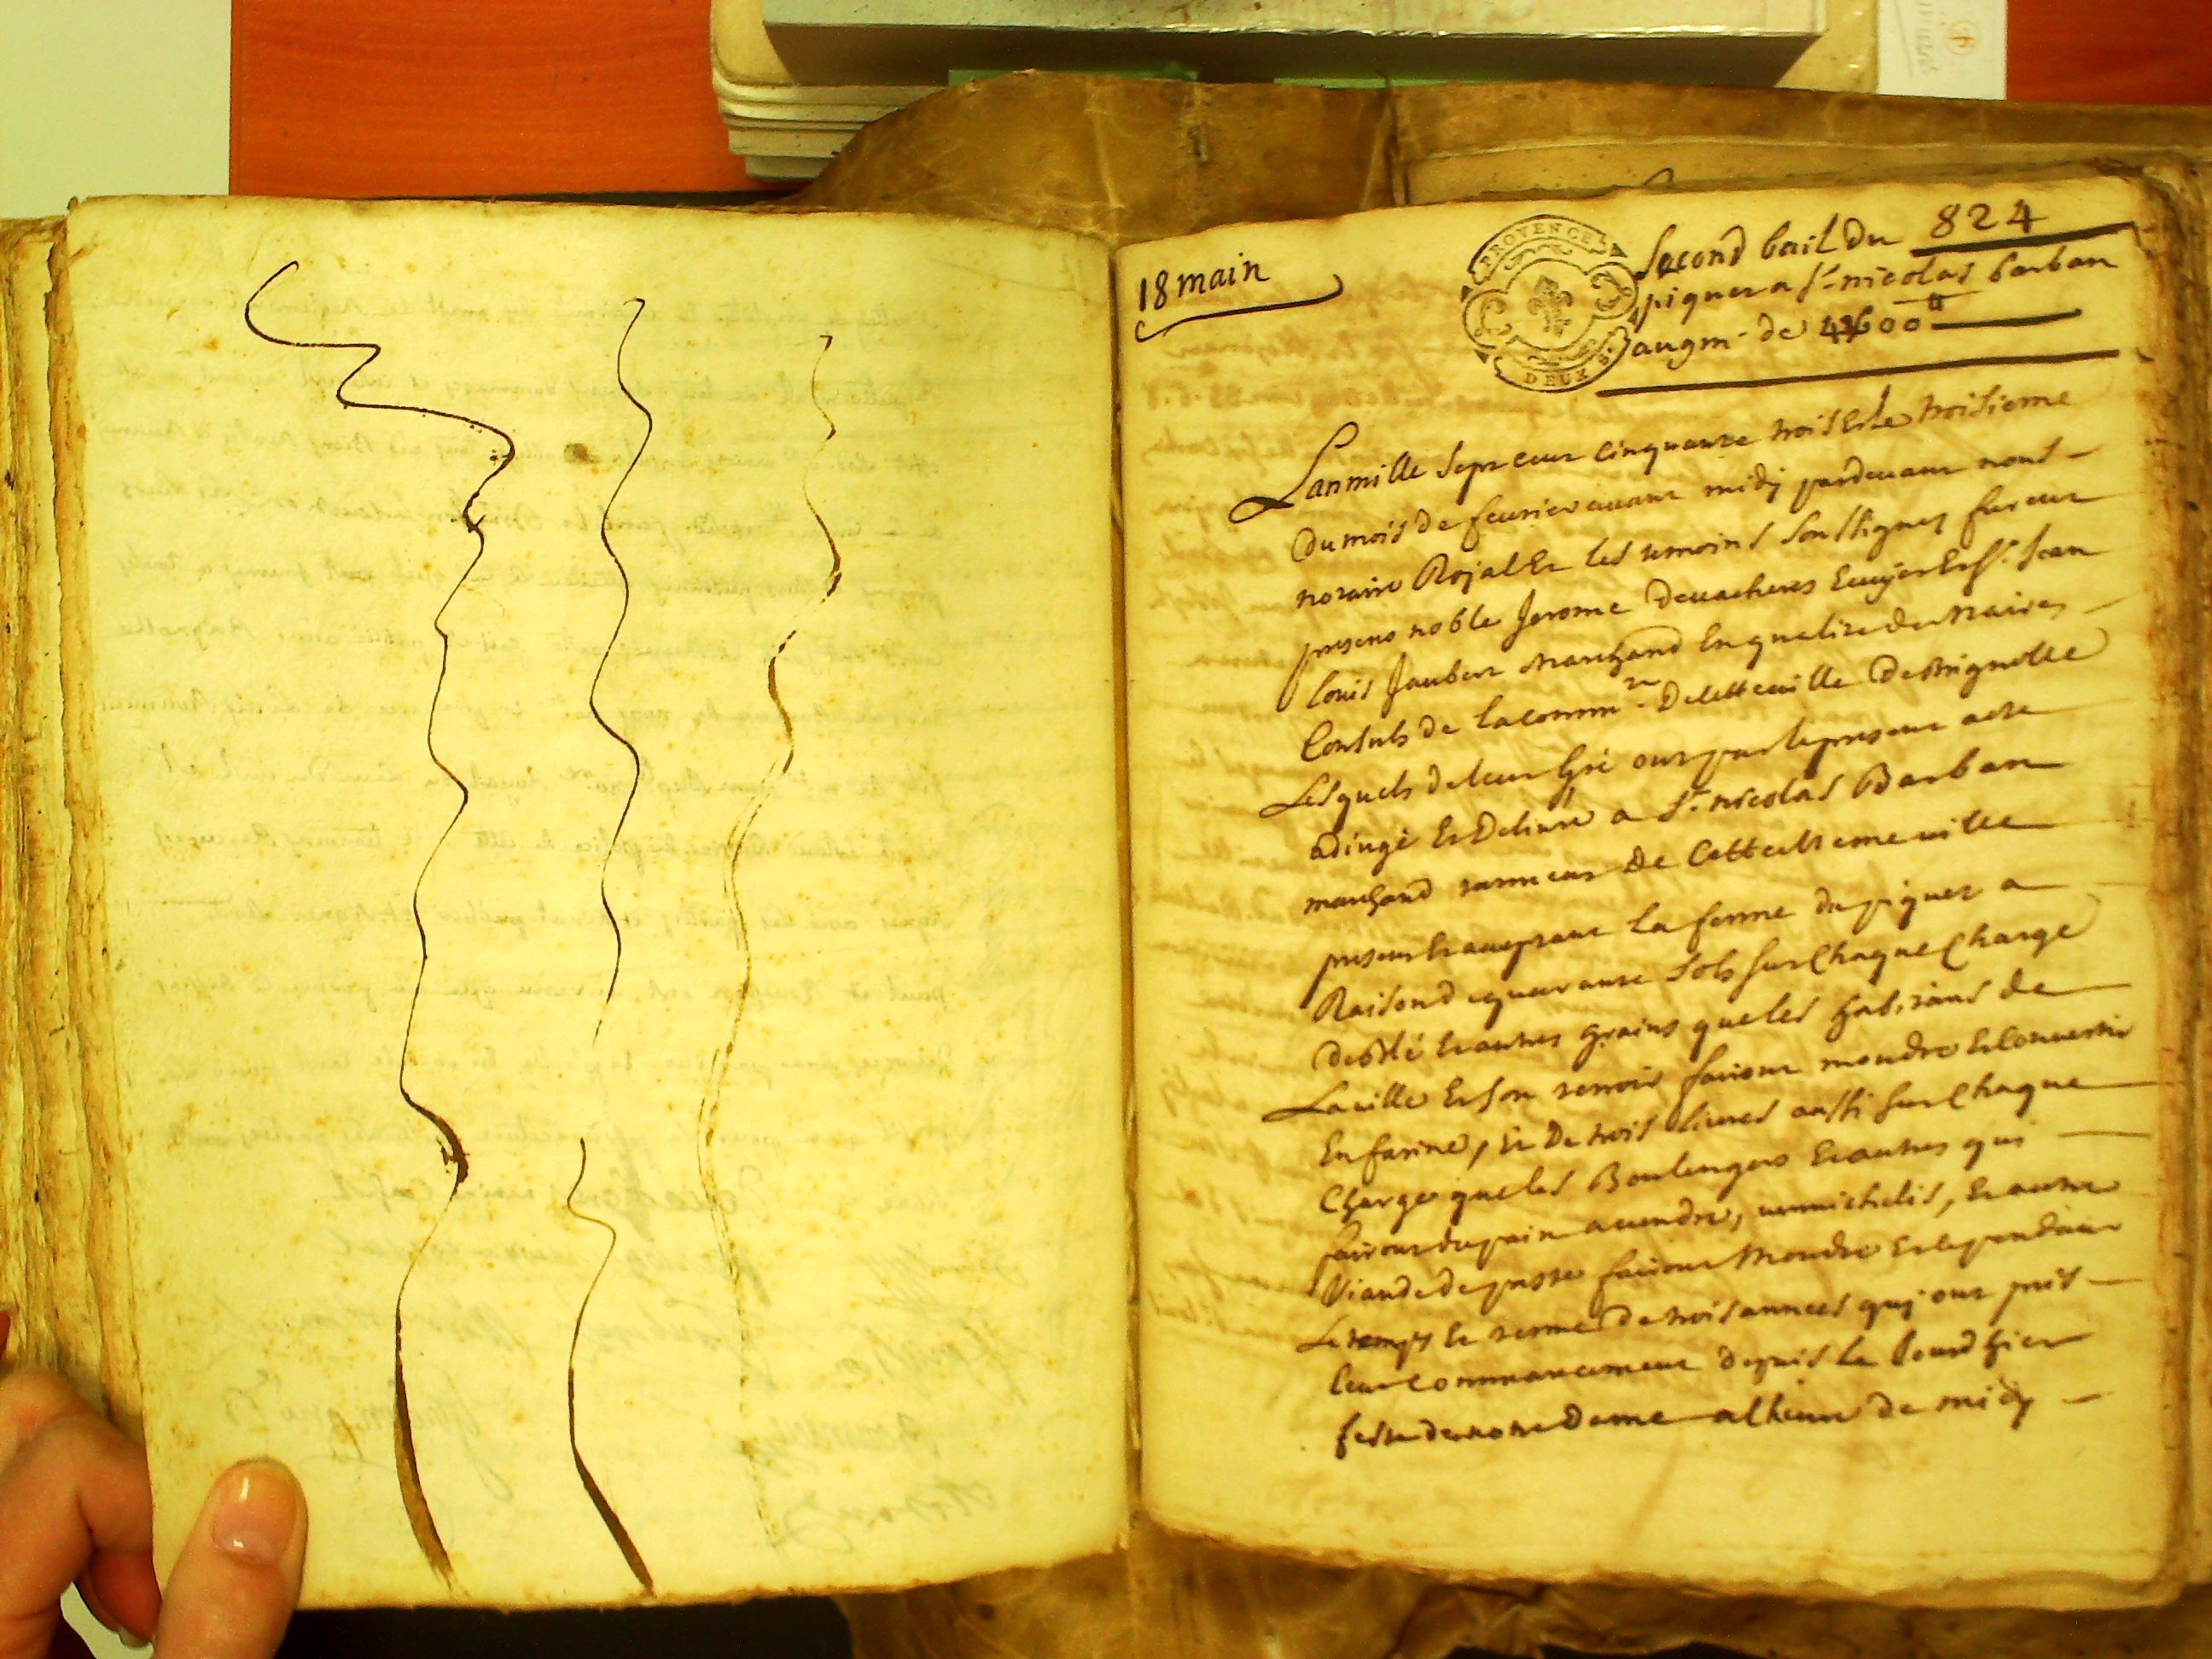 18 main
PROVENCE
DEUX S.
824
Second bail du
piquet a Sr. nicolas barban
augmn. de 4600  tt
Lan mille sept cent cinquante trois et le troisieme
du mois de feurier auant midy pardeuant nous
notaire Royal et les temoins soussignes furent
presens noble Jerome deuacheres Ecuyer et Sr. Jean
louis Jaubert marchand En qualite de maires
Consuls de la commte. de cette ville de Brignolle
Lesquels de leur gré ont par le present acte
adiugé et deliuré a Sr. nicolas Barban
marchand tanneur de cette meme ville
present et acceptant la ferme du piquet a
Raison de quarante sols sur chaque charge
de blé et autres grains que les habitans de
La ville et son terroir fairont moudre et conuertir
En farine, et de trois liures aussi sur chaque
charge que les Boulengers et autres qui
fairont du pain a uendre, uermichelis, et autre
Viande de paste fairont moudre et ce pendant
Le temps et terme de trois annees qui ont pris
leur commancement depuis le jourd hier
feste de notre dame a lheure de midy